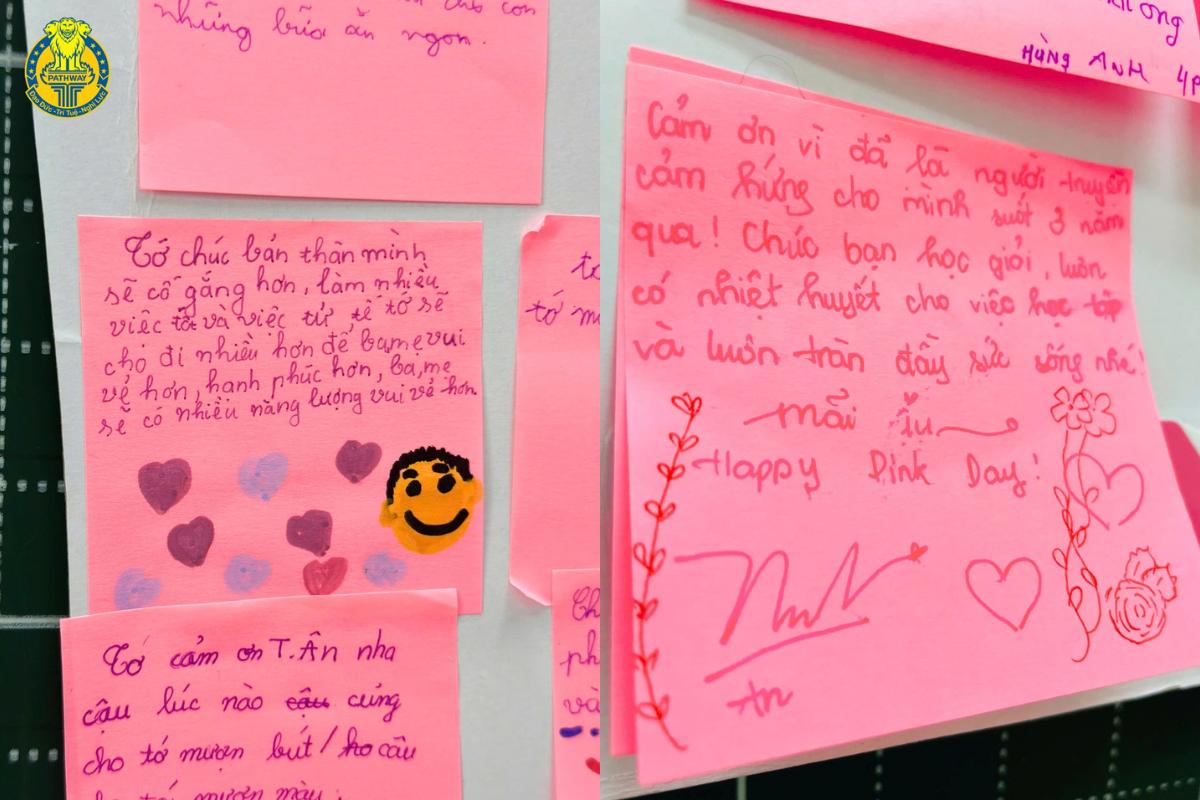 PATHWAY
Đạo Đức - Trí Tuệ - Nghị Lực
cho con
những bữa ăn ngon.
Tớ chúc bản thân mình
sẽ cố gắng hơn, làm nhiều
việc tốt và việc tử tế tớ sẽ
cho đi nhiều hơn để ba, mẹ vui
vẻ hơn, hạnh phúc hơn, ba, mẹ
sẽ có nhiều năng lượng vui vẻ hơn
Tớ cảm ơn T.Ân nha
cậu lúc nào cậu cũng
cho tớ mượn bút / ho cậu
cho tớ mượn màu.
tớ m
Ch
ph
và
Hùng Anh 4P
Cảm ơn vì đã là người truyền
cảm hứng cho mình suốt 3 năm
qua! Chúc bạn học giỏi, luôn
có nhiệt huyết cho việc học tập
và luôn tràn đầy sức sống nhé!
mãi iu
Happy Pink Day!
An